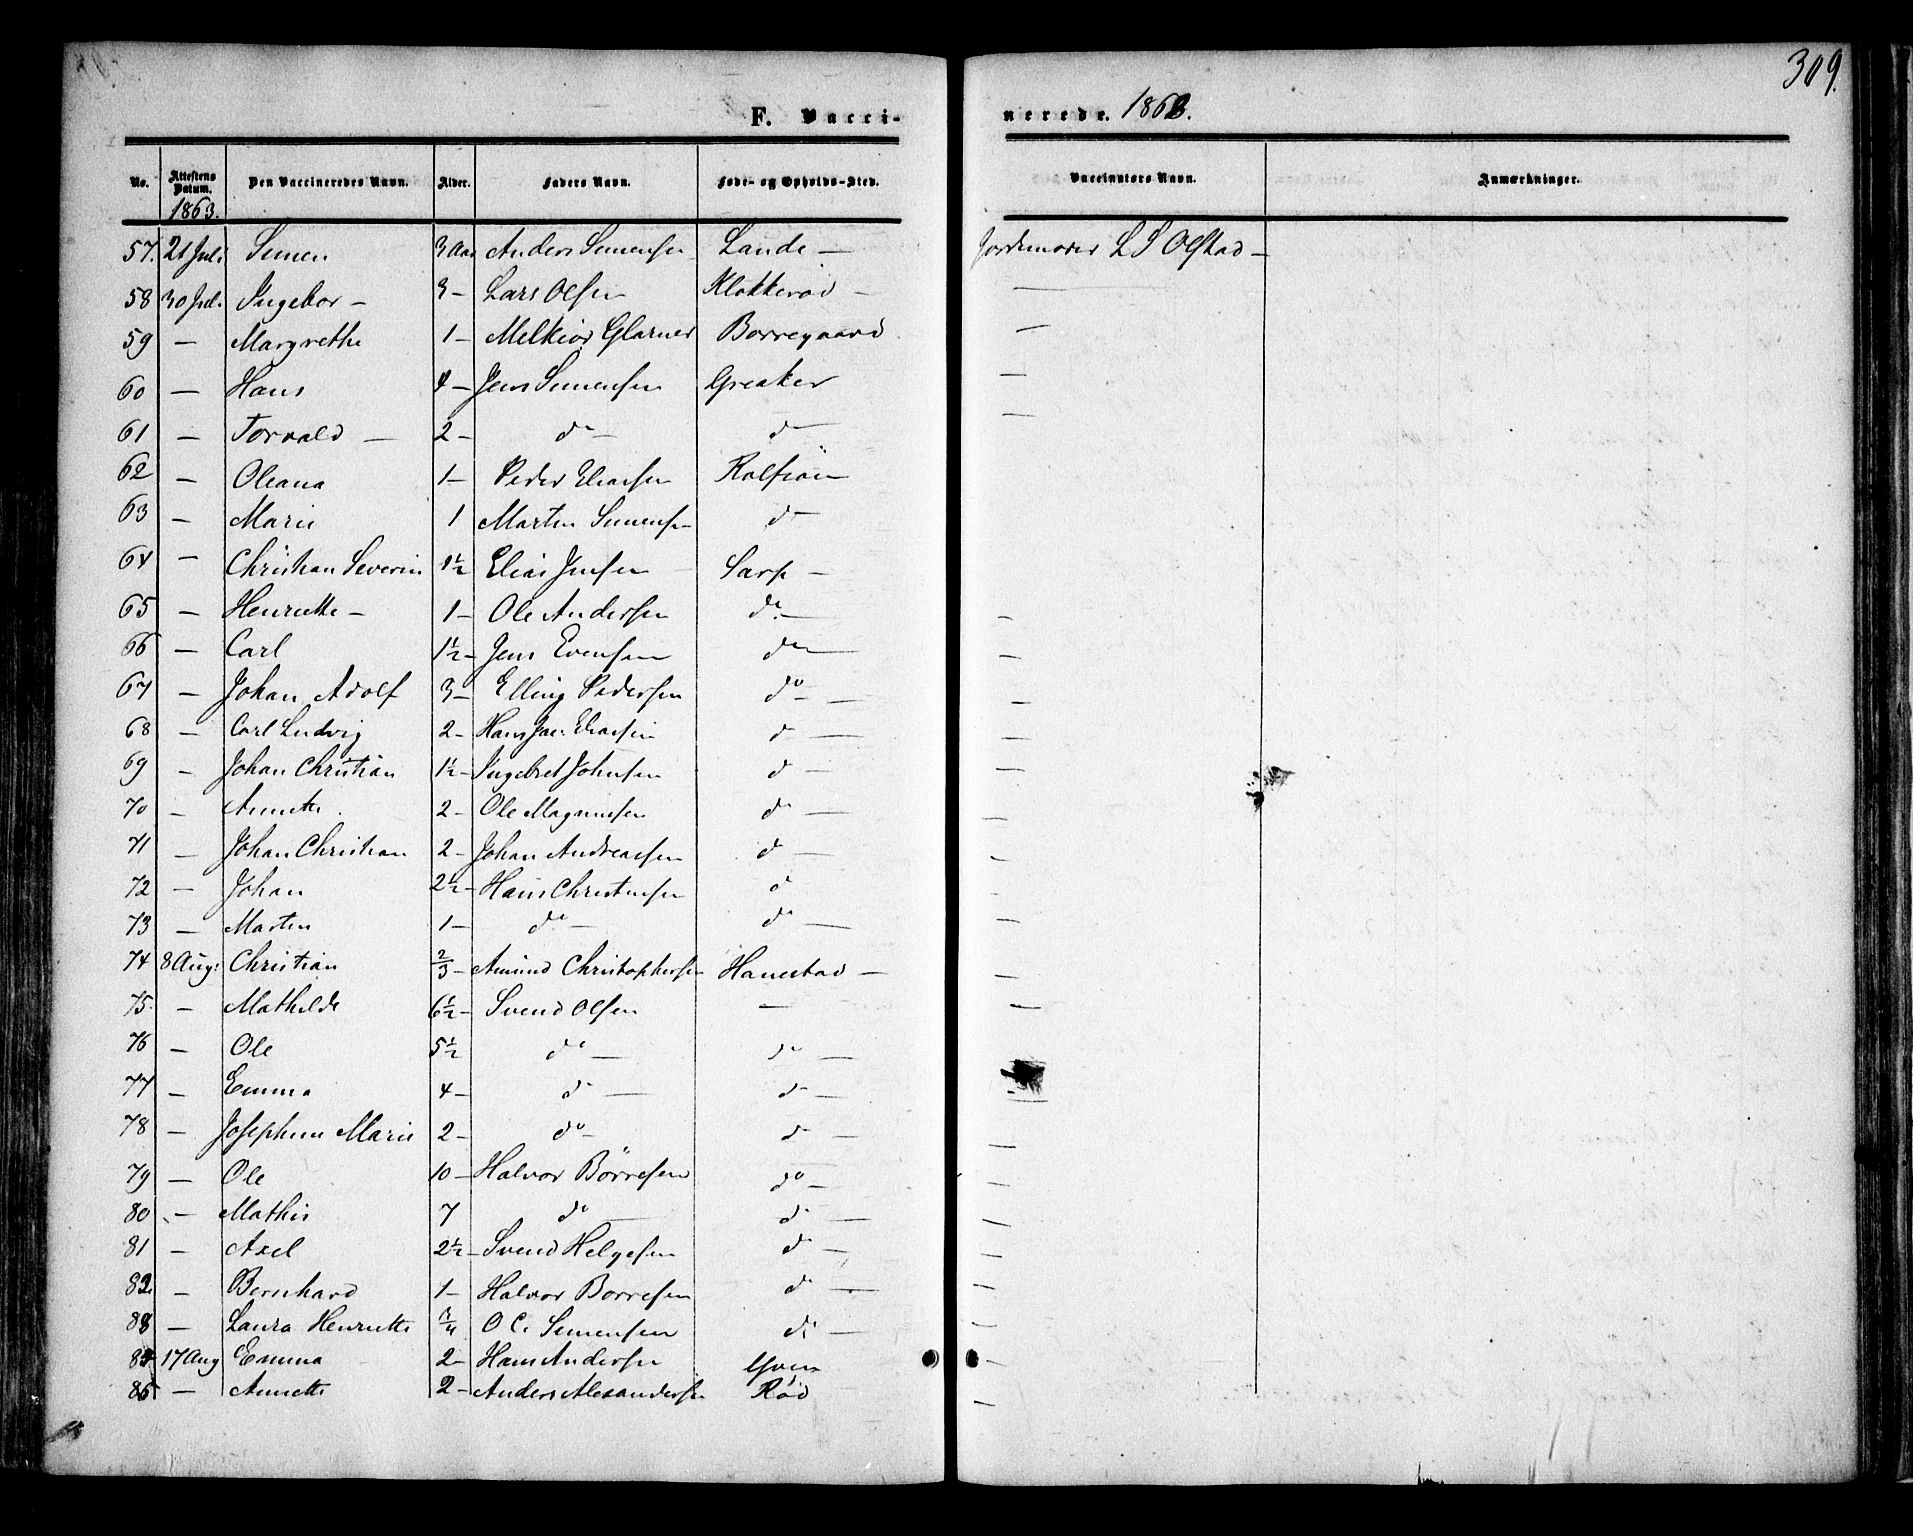 309.
F. Vacci- nerede. 1863.
No. Attestens Datum. Den Vaccineredes Navn. Alder. Faders Navn. Føde- og Opholds-Sted. Vaccinators Navn. Anmærkninger.
1863.
57. 21 Juli Simen 3 Aar Anders Simensen Lande — Jordemoder L S Olstad —
58 30 Jul. Ingebor — 3 — Lars Olsen Klokkerød —
59 — Margrethe 1 — Melkior Glarner Borregaard —
60 — Hans 4 — Jens Simensen Greaker —
61 — Torvald — 2 — do — do —
62 — Oleana 1 — Peder Eliassen Rolfsøen
63 — Marie 1 Martin Simensen do —
64 — Christian Severin 1½ Elias Jensen Sarp —
65 — Henriette — 1 — Ole Andersen do. — —
66 — Carl 1½ — Jens Evensen do — —
67 — Johan Adolf 3 — Elling Pedersen do — —
68 — Carl Ludvig 2 — Hans Jac: Eliassen do — —
69 — Johan Christian 1½ — Ingebret Johnsen do — —
70 — Annette. 2 — Ole Magnussen do — —
71 — Johan Christian 2 — Johan Andreassen do — —
72 — Johan 2½ — Hans Christensen do
73 — Martin 1 — do — do — —
74 8 Aug: Christian 2/3 — Amund Christophersen Hanestad — —
75. — Mathilde 6½ — Svend Olsen — —
76 — Ole 5½ do — do —
77 — Emma 4 — do — do — —
78 — Josephine Marie 2 — do — do — —
79 — Ole 10 — Halvor Børresen do — —
80 — Mathis 7 do — do — —
81 — Axel 2½ — Svend Helgesen do — —
82. — Bernhard 1 — Halvor Børresen do — —
83 — Laura Henriette 3/4 O C. Simensen do — —
84 17 Aug Emma 2 — Hans Andersen Yven —
85 — Annette 2 — Anders Alexandersen Rød —